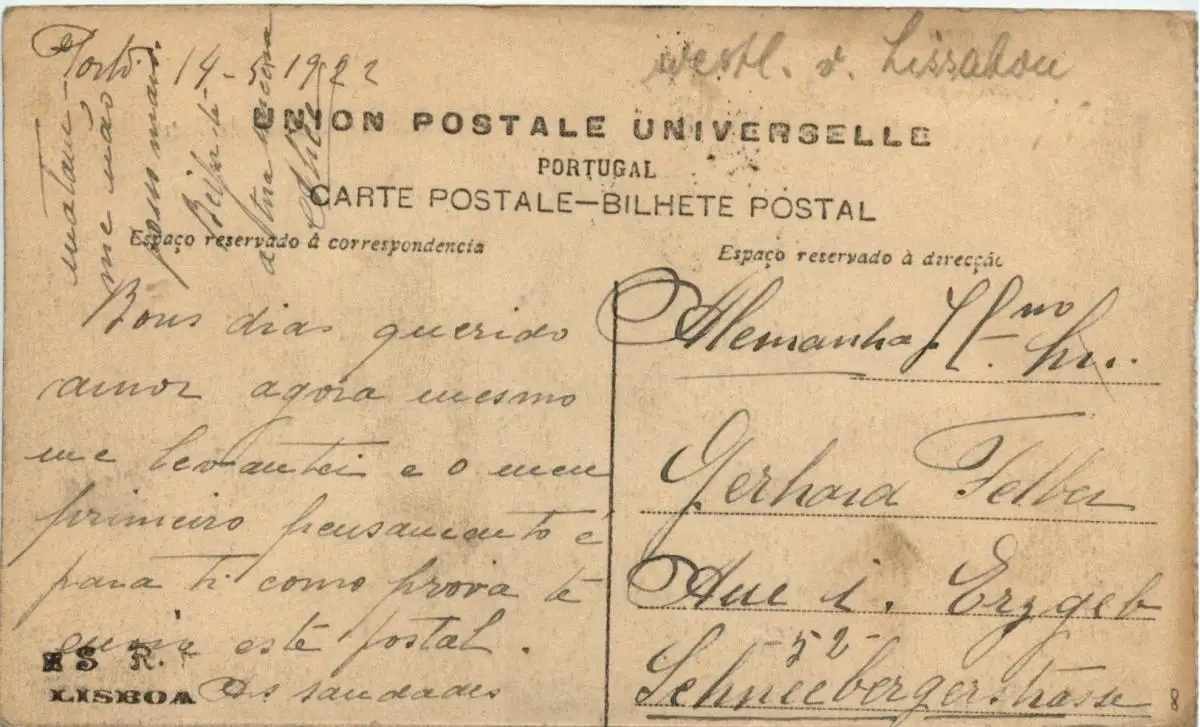 Porto 14-5-1922
westl. v. Lissabon
UNION POSTALE UNIVERSELLE
PORTUGAL
CARTE POSTALE—BILHETE POSTAL
Espaço reservado á correspondencia
Espaço reservado á direcção
Bons dias querido
amor agora mesmo
me levantei e o meu
primeiro pensamento é
para ti como prova te
envio este postal.
As saudades
matam-
me não
posso mais.
Beija-te
a tua
Alemanha
Gerhard Felber
Aue i. Erzgeb
-52-
Schneebergerstrasse
S R.
LISBOA
8